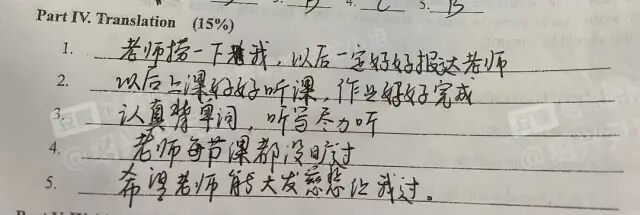 4. C 5. B
Part IV. Translation (15%)
1. 老师捞一下我，以后一定好好报达老师
2. 以后上课好好听课，作业好好完成
3. 认真背单词，听写尽力听
4. 老师每节课都没旷过
5. 希望老师能大发慈悲让我过。